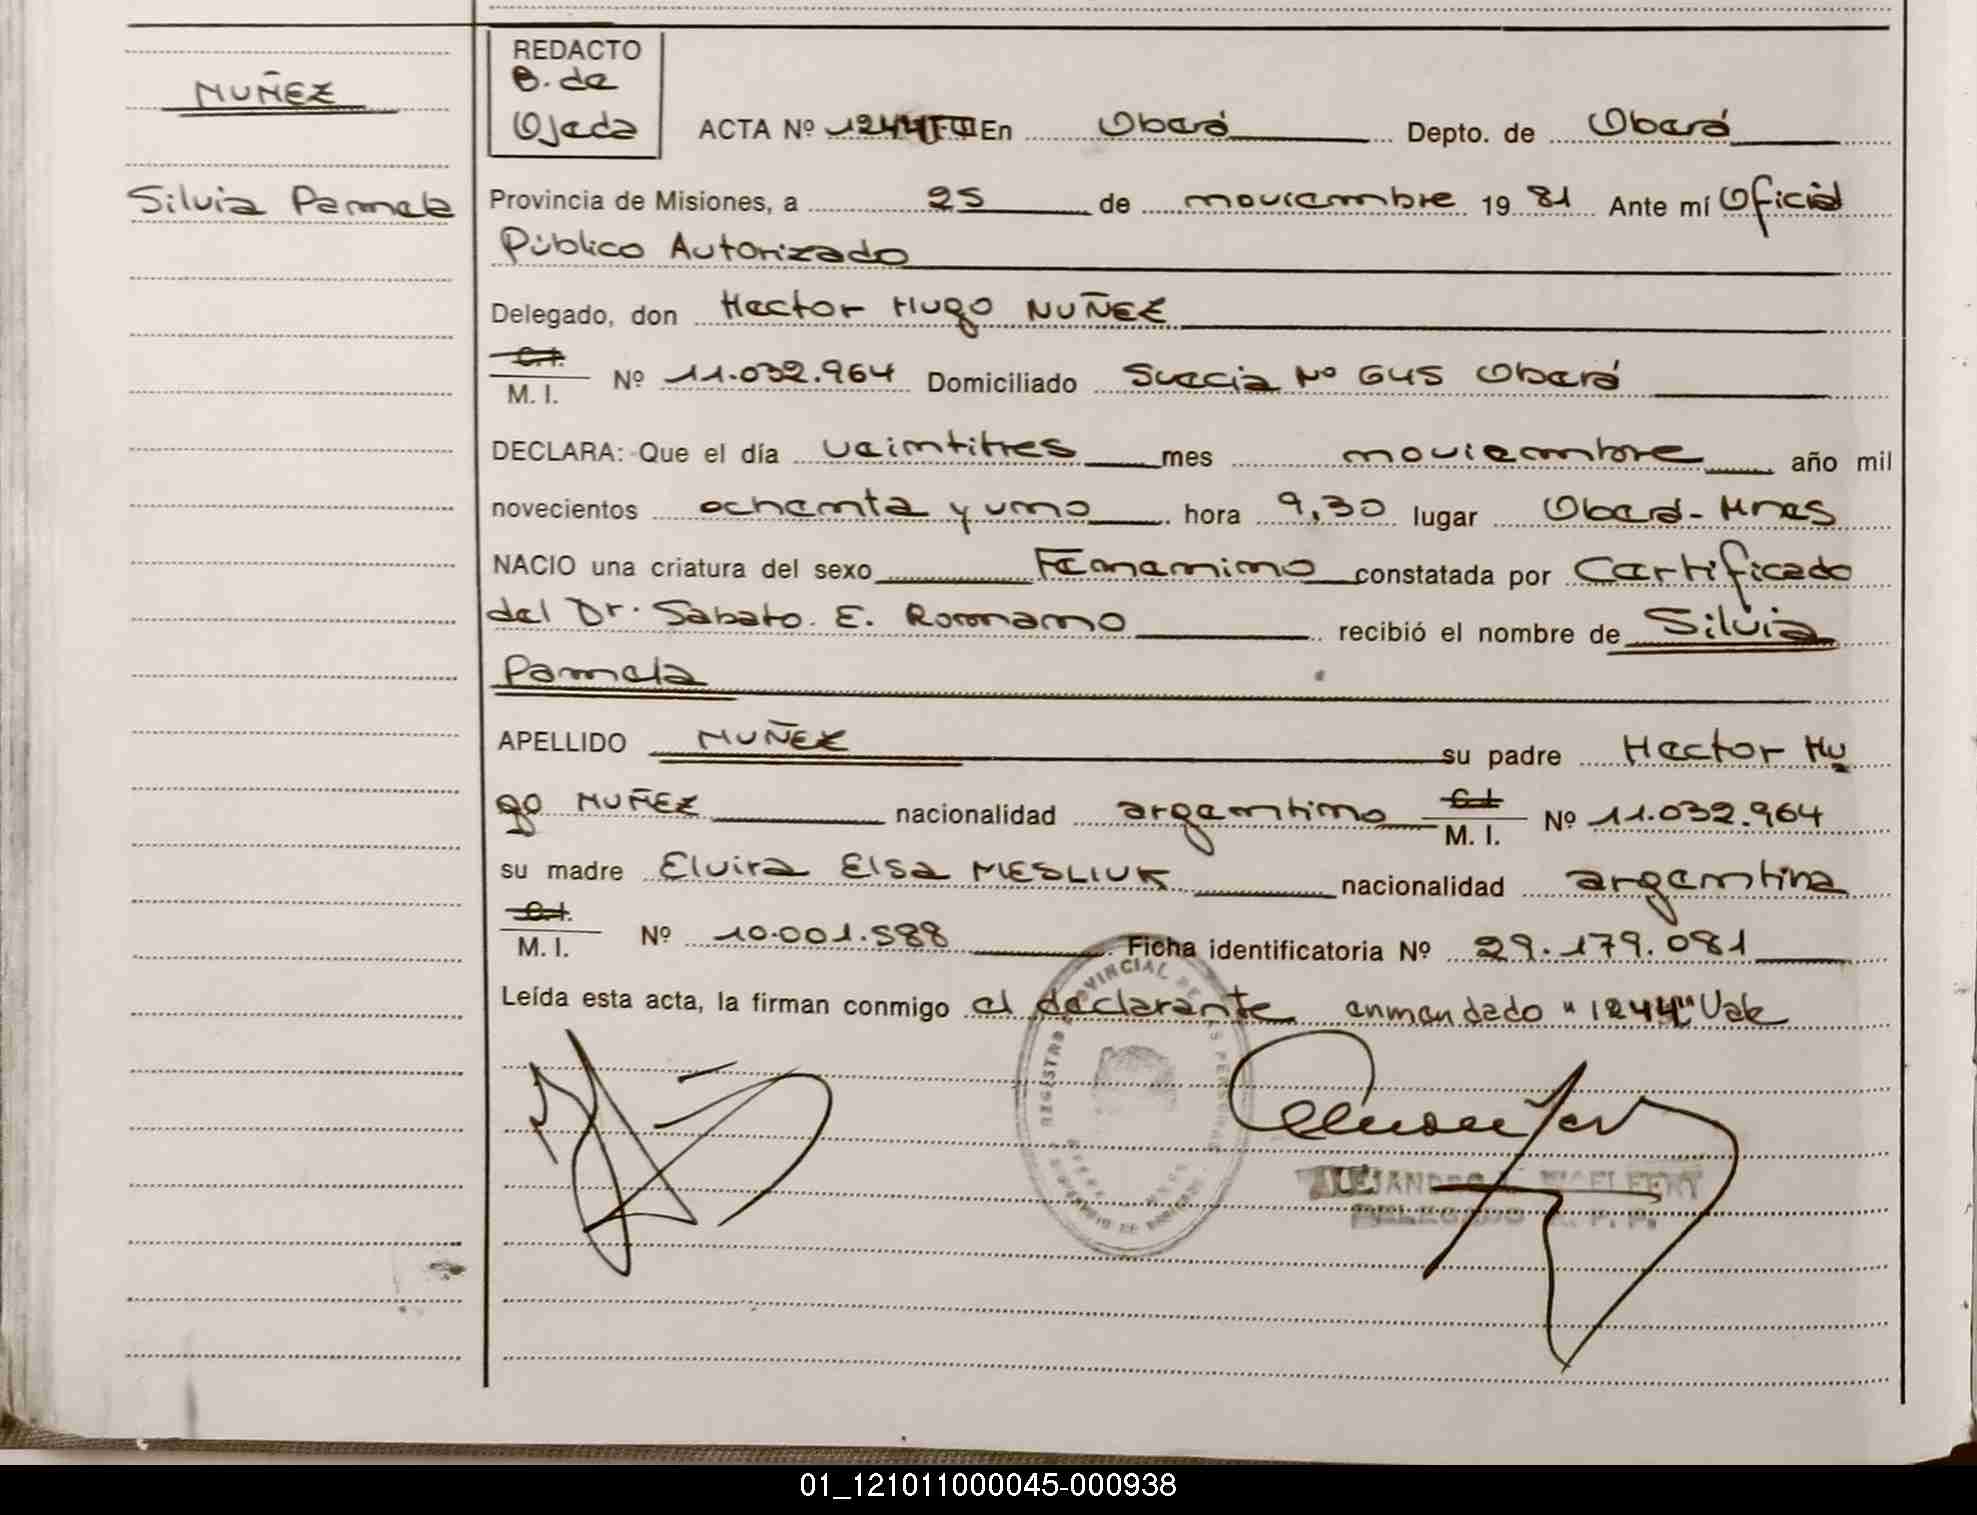 NUÑEZ
Silvia Pamela
REDACTO
B. de
Ojeda
ACTA Nº 1244 En Oberá Depto. de Oberá
Provincia de Misiones, a 25 de noviembre 19 81 Ante mí Oficial
Público Autorizado
Delegado, don Hector Hugo NUÑEZ
C.I.
M. I. Nº 11.032.964 Domiciliado Suecia Nº 645 Oberá
DECLARA: Que el día veintitres mes noviembre año mil
novecientos ochenta y uno hora 9,30 lugar Oberá - Mnes
NACIO una criatura del sexo Femenino constatada por Certificado
del Dr. Sabato. E. Romano recibió el nombre de Silvia
Pamela
APELLIDO NUÑEZ su padre Hector Hu
go NUÑEZ nacionalidad argentino C.I. M. I. Nº 11.032.964
su madre Elvira Elsa MESLIUK nacionalidad argentina
C.I.
M. I. Nº 10.001.588 Ficha identificatoria Nº 29.179.081
Leída esta acta, la firman conmigo el declarante enmendado "1244" Vale
REGISTRO PROVINCIAL DE LAS PERSONAS
DELEGADO R. P. P.
01_121011000045-000938